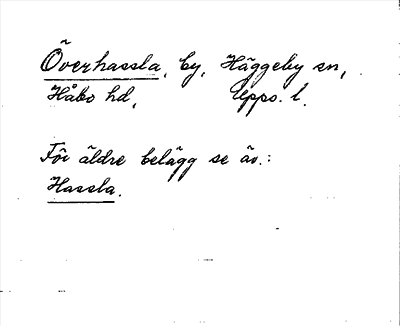 Överhassla, by, Häggeby sn,
Håbo hd, Upps. l.
För äldre belägg se äv.:
Hassla.